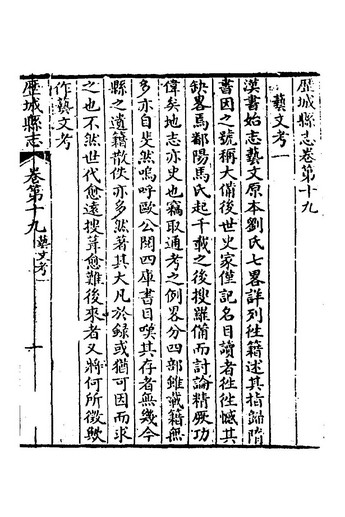 歷城縣志卷第十九
藝文考一
漢書始志藝文原本劉氏七畧詳列徃籍述其指歸隋
書因之號稱大備後世史家僅記名目讀者徃徃憾其
缺畧焉鄱陽馬氏起千載之後搜羅備而討論精厥功
偉矣地志亦史也竊取通考之例畧分四部雖載籍無
多亦自斐然嗚呼歐公閱四庫書目嘆其存者無幾今
縣之遺籍散佚亦多然著其大凡於録或猶可因而求
之也不然世代愈遠搜葺愈難後來者又將何所徵歟
作藝文考
歷城縣志 卷第十九 藝文考一 一